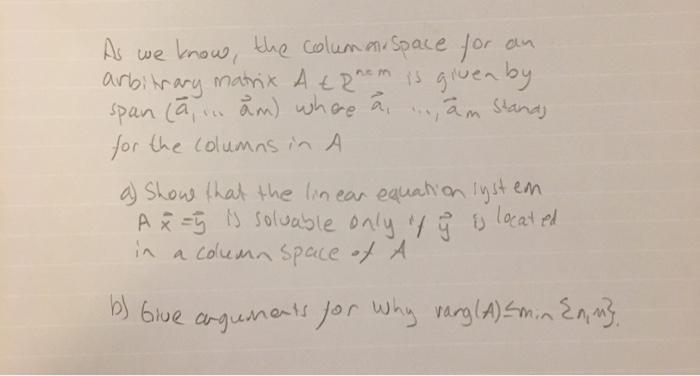 As we know, the column space for an
arbitrary matrix A ∈ R^{n×m} is given by
span (a⃗₁ ... a⃗m) where a⃗₁ ..., a⃗m stands
for the columns in A
a) Show that the linear equation system
A x⃗ = y⃗ is solvable only if y⃗ is located
in a column space of A
b) Give arguments for why rang(A) ≤ min {n, m}.